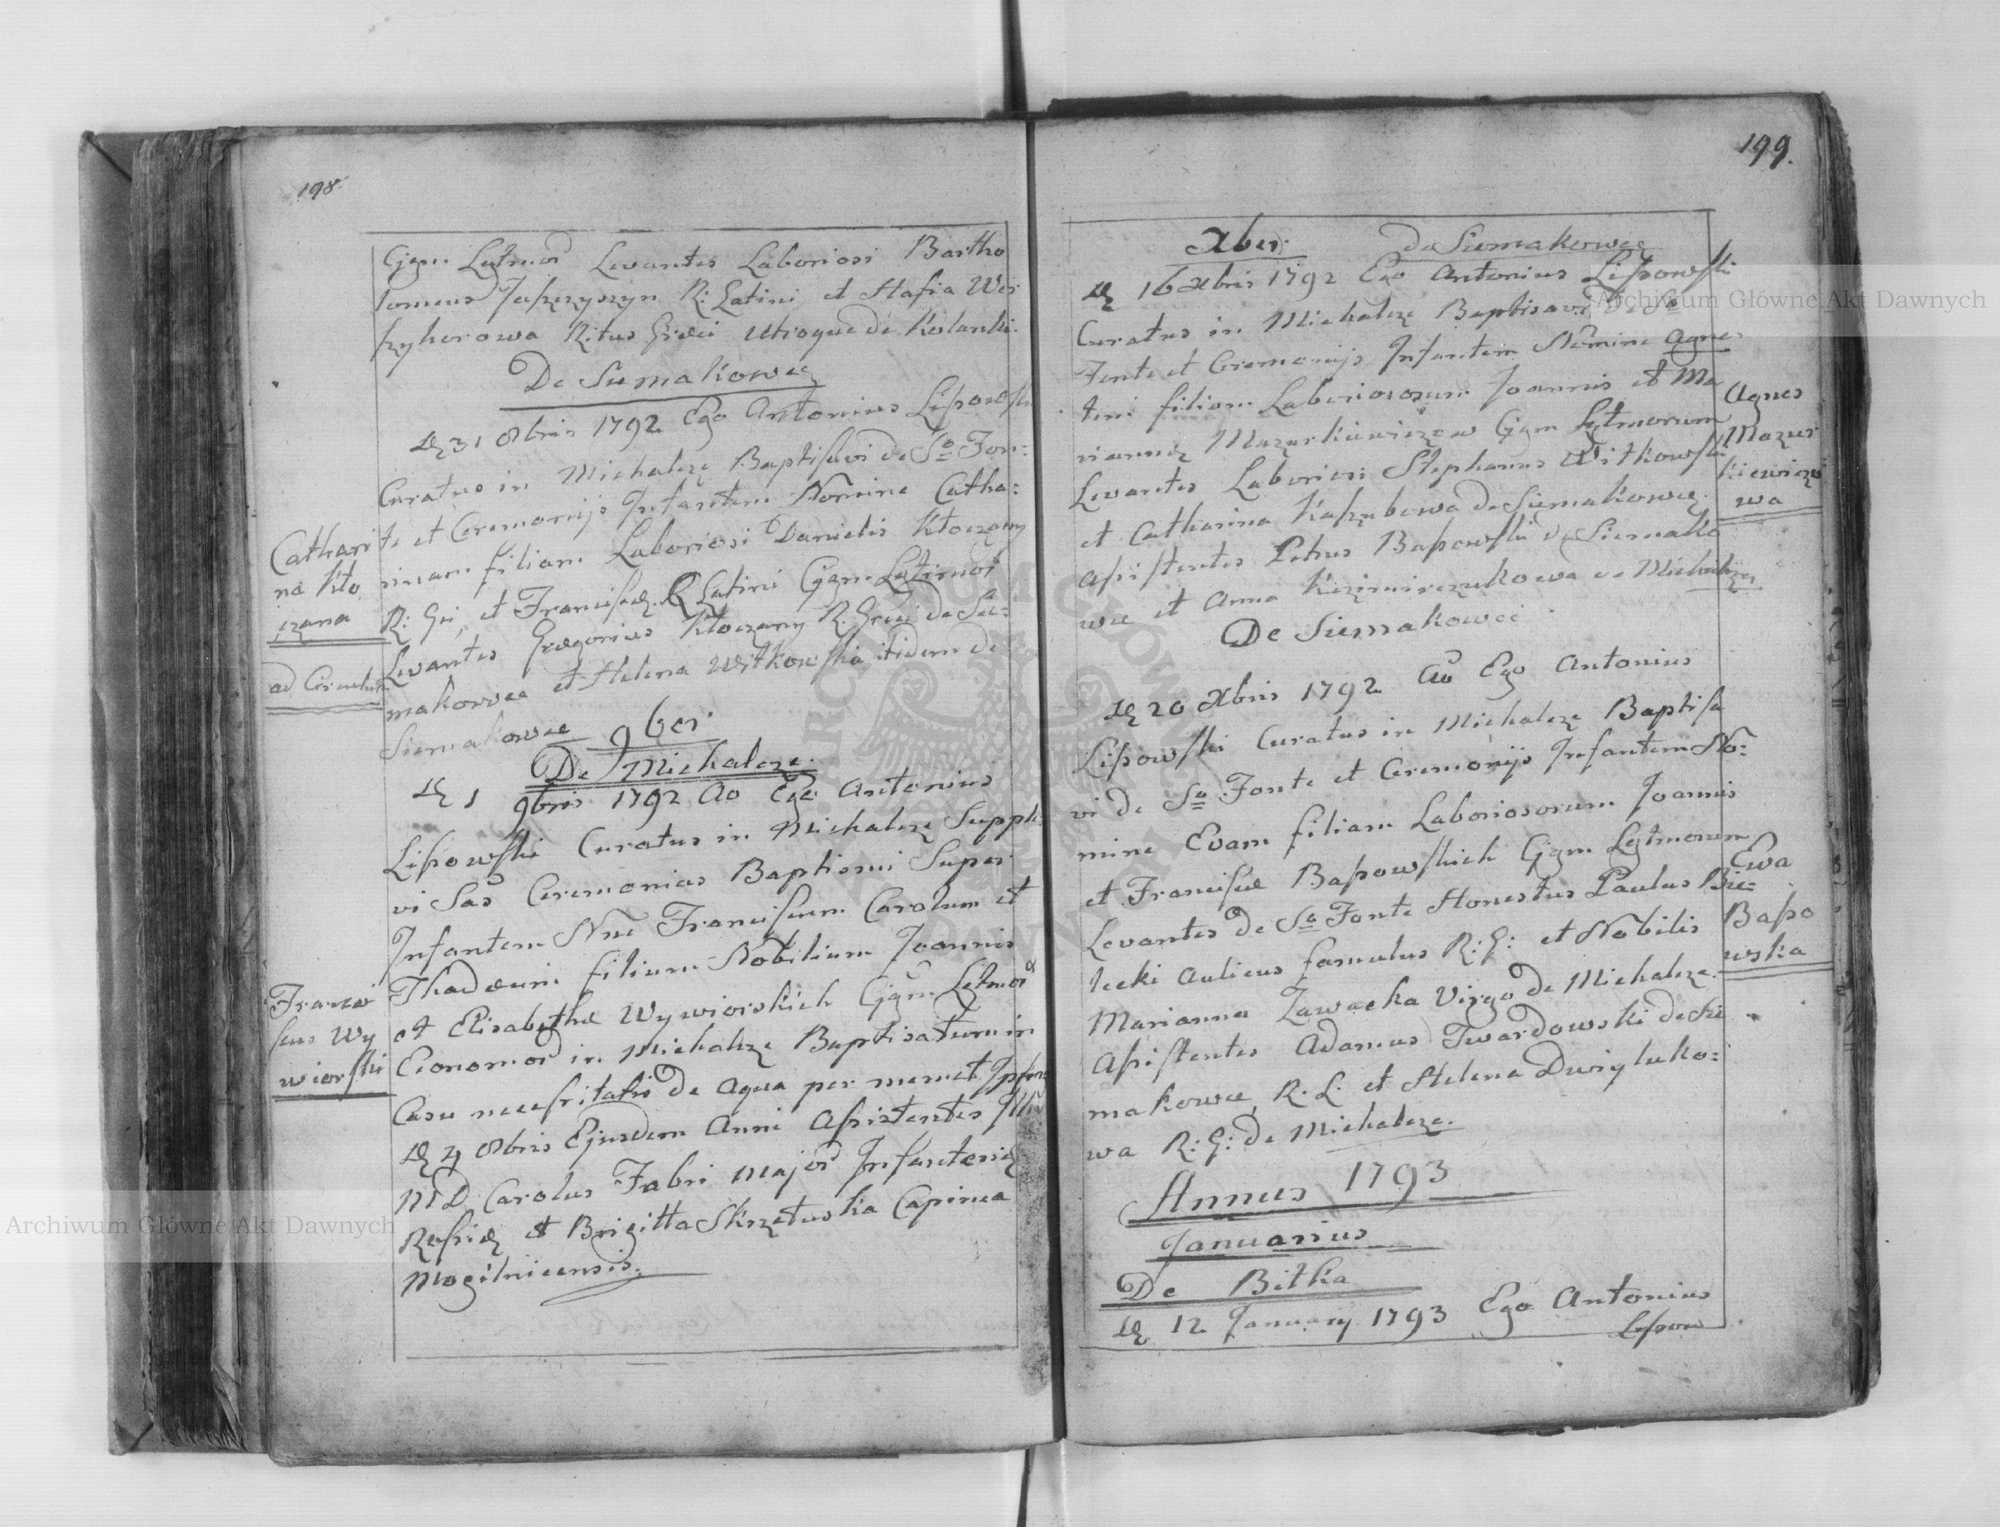 198.
Cjgm Lgtmor̄ Levantes Laboriosi Bartho
lomeus Japczyszyn R: Latini et Stafia Wer
Ritus Græci utroque de
De Siemakowce
Dę 31 8bris 1792 Ego Antonius Lisowski
Curatus in Michalcze Baptisavi de So Fon:
te et Ceremonijs Infantem Nomine Catha:
rinam filiam Laboriosi Danielis Kłoczany
R: Gri et Franciscæ R Latini Cjgm Lgtimor̄
Levantes Gregorius Kłoczany R. Græci de Sie:
makowce et Helena Witkowska itidem de
Siemakowce
Cathari
na Kło
czana
ad Cironlum
9ber
De Michalcze.
Dę 1 9bris 1792 Ao Ego Antonius
Lisowski Curatus in Michalcze Supple
vi Sas Ceremonias Baptismi Super
Infantem Nne Franciscum Carolum et
Thadæum filium Nobilium Joannis
et Elisabethæ Wywiorskich Cjgm Letmor̄
Economor̄ in Michalcze Baptisatum in
Casu necessitatis de aqua per memet Ipsum
Dę 4 8bris Ejusdem Anni Assistentes Ill
M D Carolus Fabri Major Infanteriæ
Rossiæ et Brigitta Skrzetuska Capinea
Mogilnicensis.
Franci
scus Wy
wiorski
199.
Xber: de Siemakowce
Dę 16 Xbris 1792 Ego Antonius Lisowski
Curatus in Michalcze Baptisavi de So
Fonte et Ceremonijs Infantem Nomine Agne
tem filiam Laboriosorum Joannis et Ma
riannæ Mazurkiewiczow Cjgm Lgtmorum
Levantes Laboriosi Stephanus Witkowski
et Catharina Kaszubowa de Siemakowce.
Assistentes Petrus Basowski de Siemako
wce et Anna Kazimirczukowa de Michalcze
Agnes
Mazur
kiewiczo
wa
De Siemakowce
Dę 20 Xbris 1792 Ao Ego Antonius
Lisowski Curatus in Michalcze Baptisa
vi de So Fonte et Ceremonijs Infantem No:
mine Evam filiam Laboriosorum Joannis
et Franciscæ Basowskich Cjgm Lgtmorum
Levantes de So Fonte Honestus Paulus Bie:
lecki Aulicus famulus R: G: et Nobilis
Marianna Zawacka Virgo de Michalcze.
Assistentes Adamus Twardowski de Sie
makowce R. L. et Helena Dwigluko:
wa R: G: de Michalcze.
Ewa
Baso
wska
Annus 1793
Januarius
De Bitka
Dę 12 January 1793 Ego Antonius
Lisow
Archiwum Główne Akt Dawnych
Archiwum Główne Akt Dawnych
ARCHIWUM GŁÓWNE AKT DAWNYCH